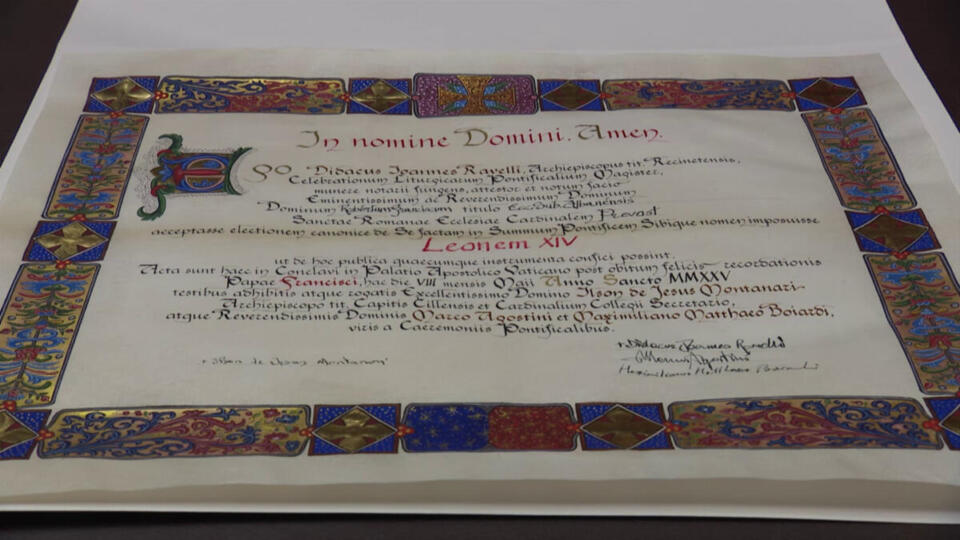 In nomine Domini. Amen.
EGO Didacus Ioannes Ravelli, Archiepiscopus tit. Recinetensis,
Celebrationum Liturgicarum Pontificalium Magister,
munere notarii fungens, attestor et notum facio
Eminentissimum ac Reverendissimum Dominum
Dominum Robertum Franciscum titulo Albanensis
Sanctae Romanae Ecclesiae Cardinalem Prevost
acceptasse electionem canonice de Se factam in Summum Pontificem Sibique nomen imposuisse
Leonem XIV
ut de hoc publica quaecumque instrumenta confici possint.
Acta sunt haec in Conclavi in Palatio Apostolico Vaticano post obitum felicis recordationis
Papae Francisci, hac die VIII mensis Maii Anno Sancto MMXXV
testibus adhibitis atque rogatis Excellentissimo Domino Ilson de Jesus Montanari
Archiepiscopo tit. Capitis Cillensis et Cardinalium Collegii Secretario,
atque Reverendissimis Dominis Marco Agostini et Maximiliano Matthaeo Boiardi,
viris a Caeremoniis Pontificalibus.
+ Didacus Ioannes Ravelli
+ Ilson de Jesus Montanari
Marcus Agostini